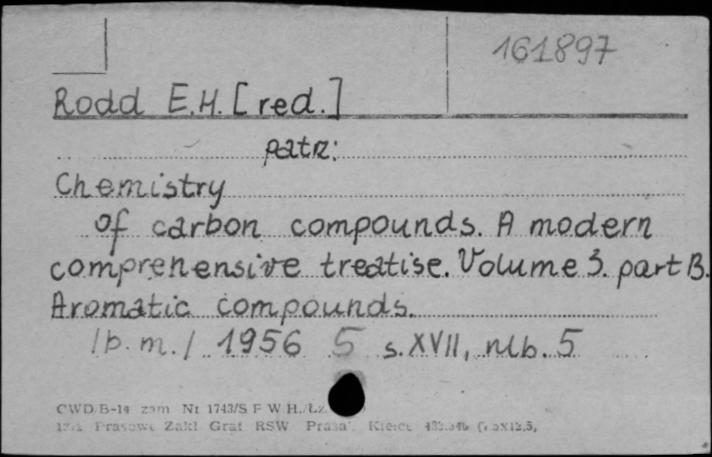 161897
Rodd E.H. [red.]
patrz:
Chemistry
of carbon compounds. A modern
comprehensive treatise. Volume 3. part B.
Aromatic compounds.
/b.m./ 1956 5 s. XVII, nlb. 5
CWD/B-14 zam Nr 1743/S F W H./Łz.
Prasowe Zakł Graf RSW "Prasa" Kielce